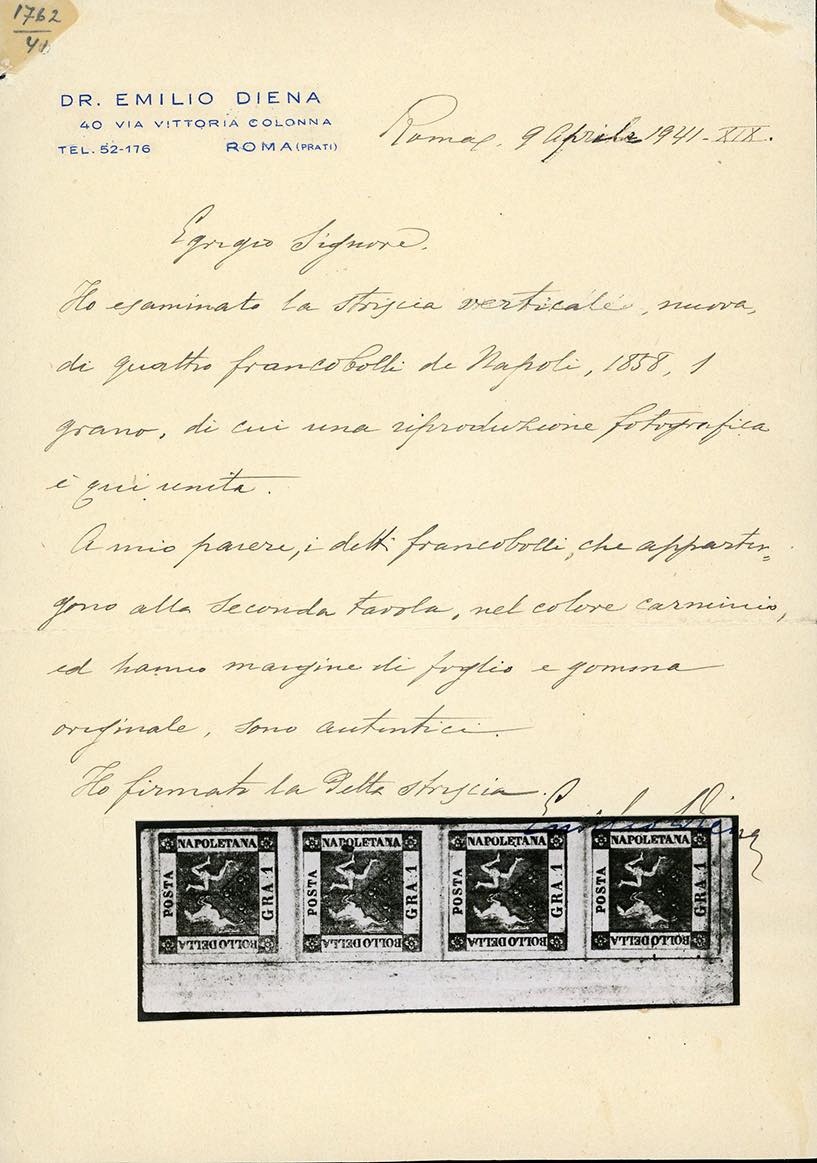 1762
DR. EMILIO DIENA
40 VIA VITTORIA COLONNA
TEL. 52-176 ROMA (PRATI)
Roma, 9 Aprile 1941-XIX.
Egregio Signore.
Ho esaminato la striscia verticale, nuova,
di quattro francobolli di Napoli, 1858, 1
grano, di cui una riproduzione fotografica
è qui unita.
A mio parere, i detti francobolli, che apparten=
gono alla seconda tavola, nel colore carminio,
ed hanno margine di foglio e gomma
originale, sono autentici.
Ho firmato la detta striscia.
Emilio Diena
NAPOLETANA NAPOLETANA NAPOLETANA NAPOLETANA
POSTA GRA 1 POSTA GRA 1 POSTA GRA 1 POSTA GRA 1
BOLLO DELLA BOLLO DELLA BOLLO DELLA BOLLO DELLA